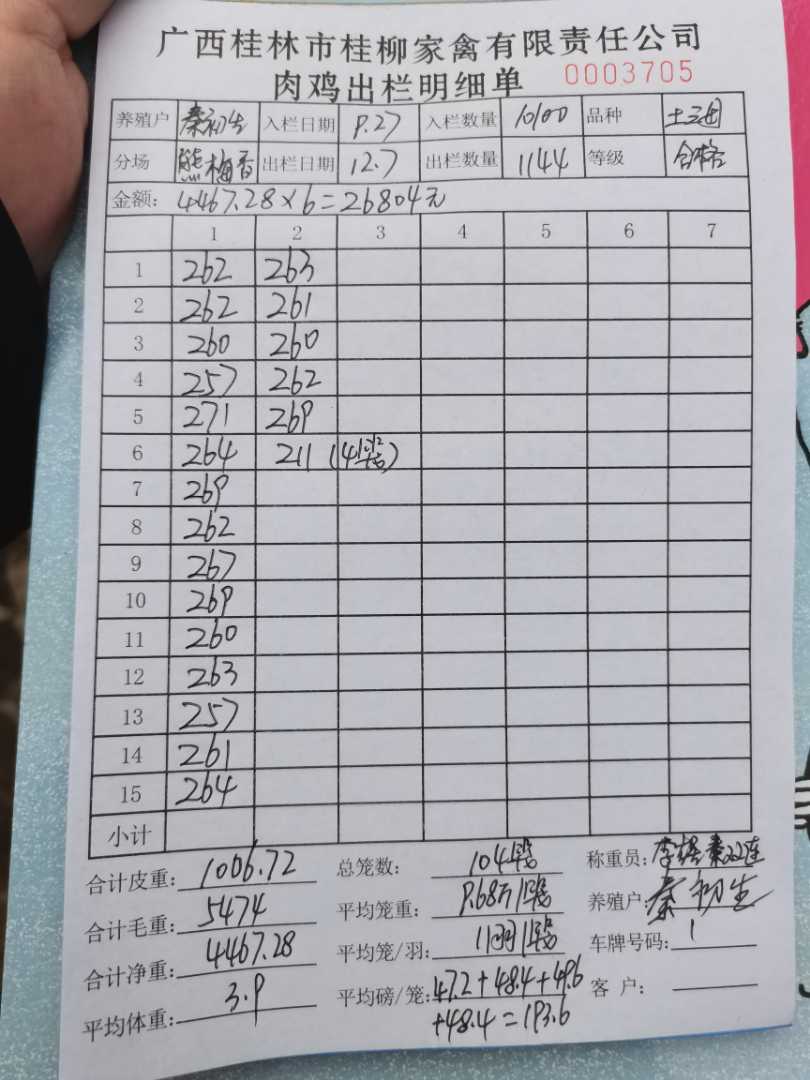 广西桂林市桂柳家禽有限责任公司
肉鸡出栏明细单 0003705
养殖户 秦初生 入栏日期 9.27 入栏数量 10100 品种 土二
分场 熊梅香 出栏日期 12.7 出栏数量 1144 等级 合格
金额: 4467.28×6=26804元
1 2 3 4 5 6 7
1 262 263
2 262 261
3 260 260
4 257 262
5 271 269
6 264 211 (4笼)
7 269
8 262
9 267
10 269
11 260
12 263
13 257
14 261
15 264
小计
合计皮重: 1006.72 总笼数: 104笼 称重员:
合计毛重: 5474 平均笼重: 9.68斤/笼 养殖户: 秦初生
合计净重: 4467.28 平均笼/羽: 11羽/笼 车牌号码: 1
平均体重: 3.9 平均磅/笼: 47.2+48.4+49.6 客 户:
+48.4=193.6